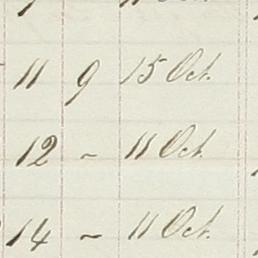 11 9 15 Oct.
12 ~ 11 Oct.
14 ~ 11 Oct.